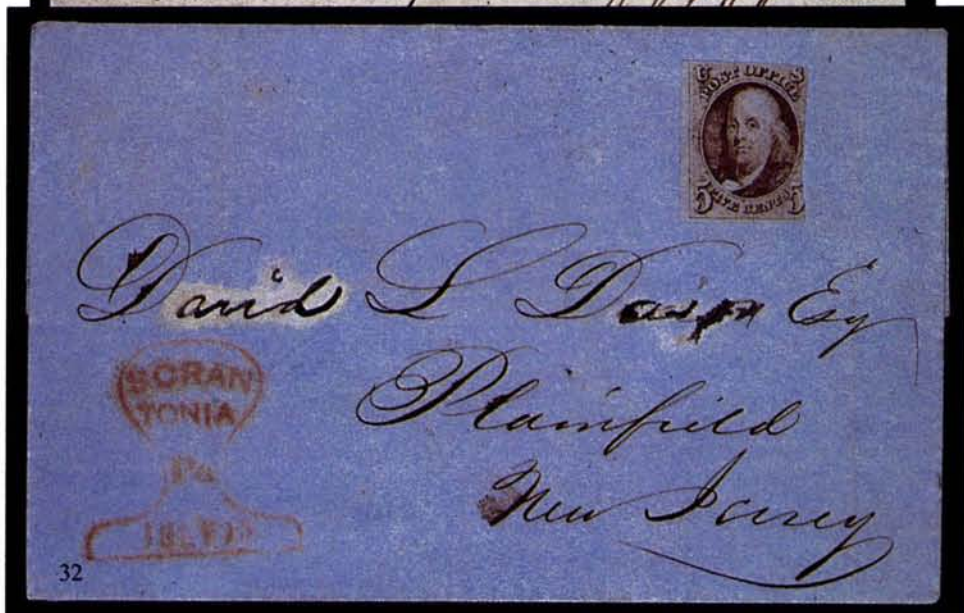 POST OFFICE
FIVE CENTS
David L Esq
Plainfield
New Jersey
SCRAN
TONIA
Pa
32